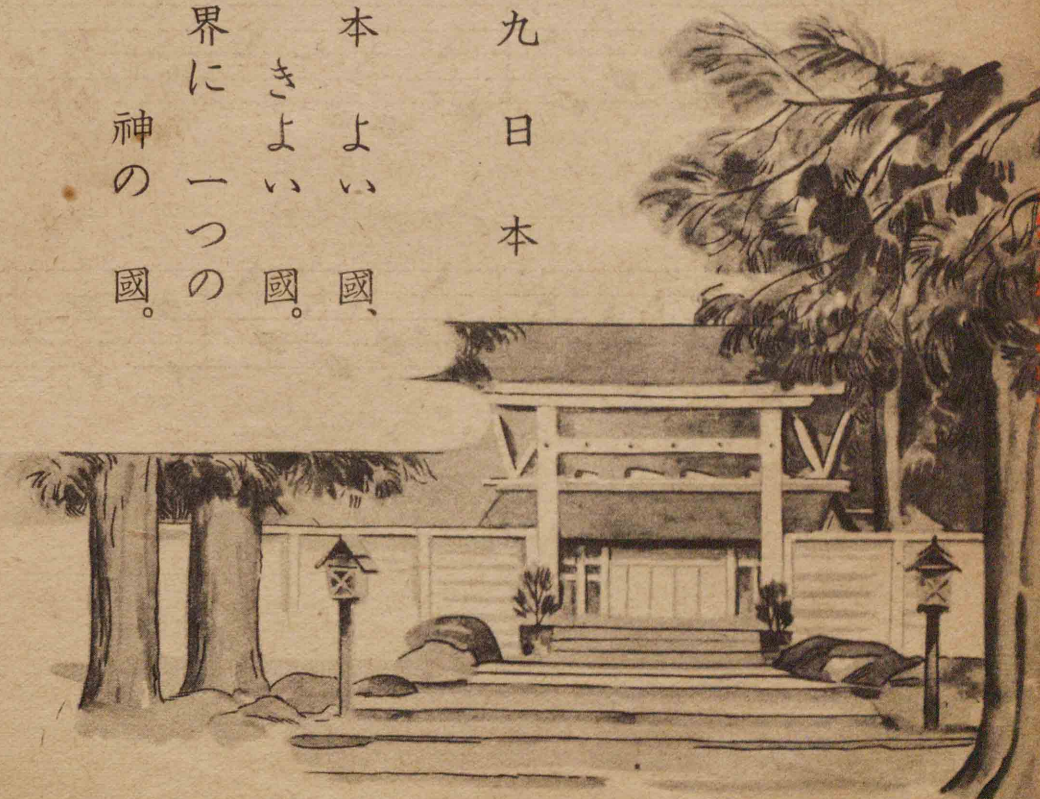 九 日本
本 よい 國、
きよい 國。
界に 一つの
神の 國。